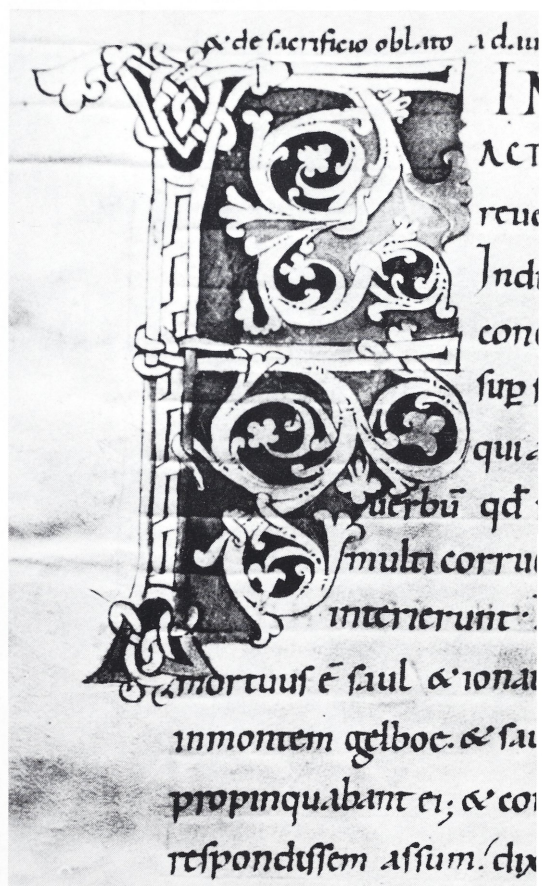 & de sacrificio oblato a dau
IN
ACT
reue
Indi
con
sup̱ s
qui a
uerbū qđ
multi corru
interierunt·
mortuus ē saul & iona
inmontem gelboe. & sau
propinquabant ei; & con
respondissem assum. dix